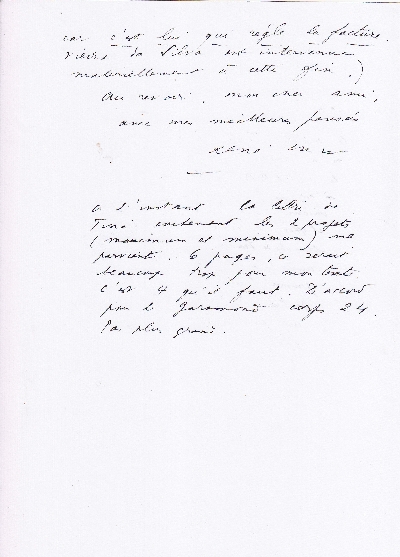 car c'est lui qui règle la facture.
Vieira da Silva est intervenue
matériellement à cette fin.)
Au revoir, mon cher ami,
avec mes meilleures pensées
René
A l'instant la lettre de
contenant les 2 projets
(maximum et minimum) me
parvient. 6 pages, ce serait
beaucoup trop pour mon texte
C'est 4 qu'il faut. D'accord
pour le Garamond corps 24.
Pas plus grand.